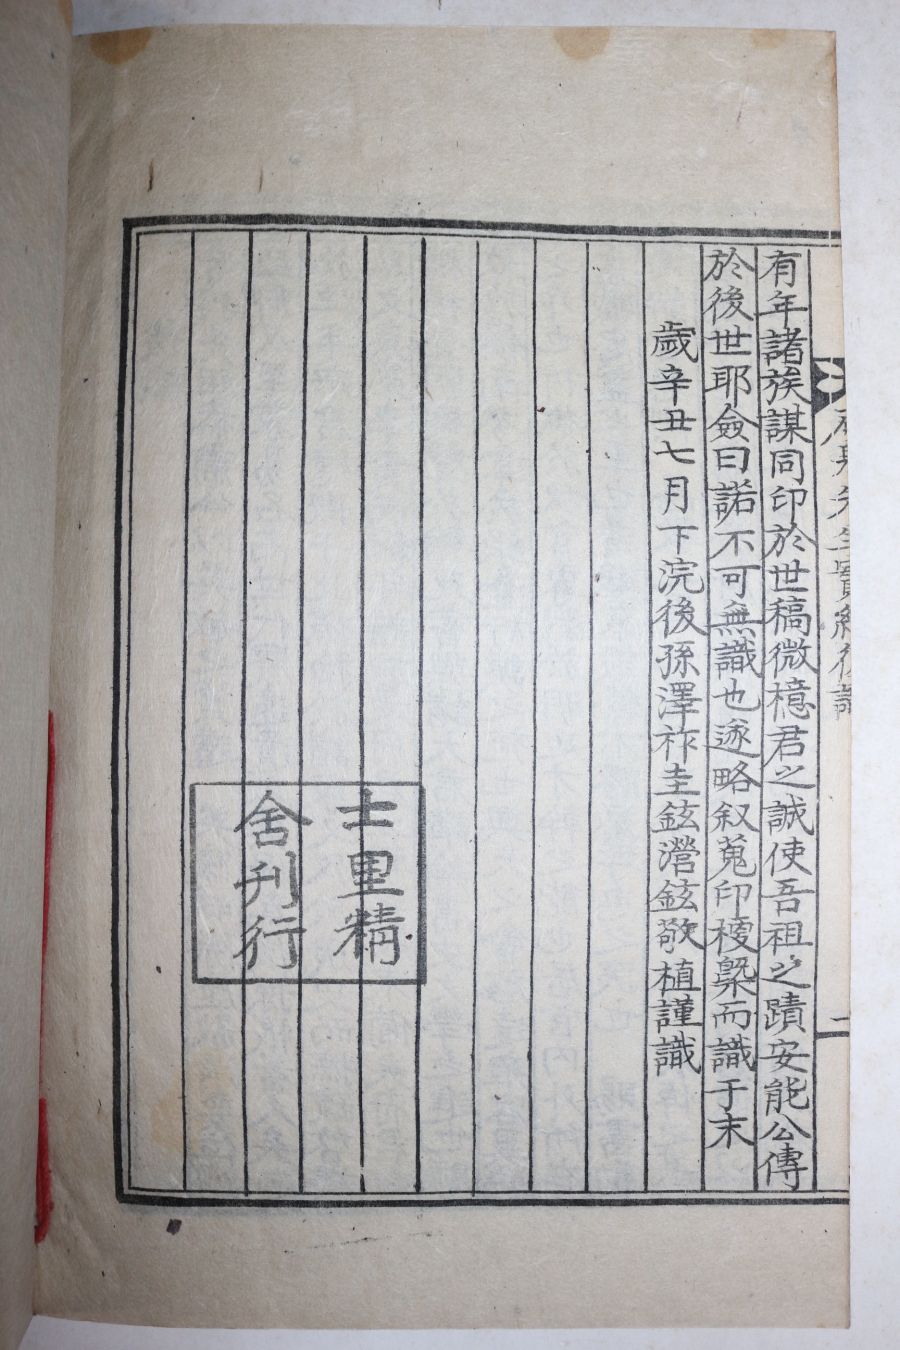 有年諸族謀同印於世稿微檍君之誠使吾祖之蹟安能公傳
於後世耶僉曰諾不可無識也遂略叙蒐印榎槩而識于末
歲辛丑七月下浣後孫澤祚圭鉉瀯鉉敬植謹識
士里精
舍刊行
先生實紀後識